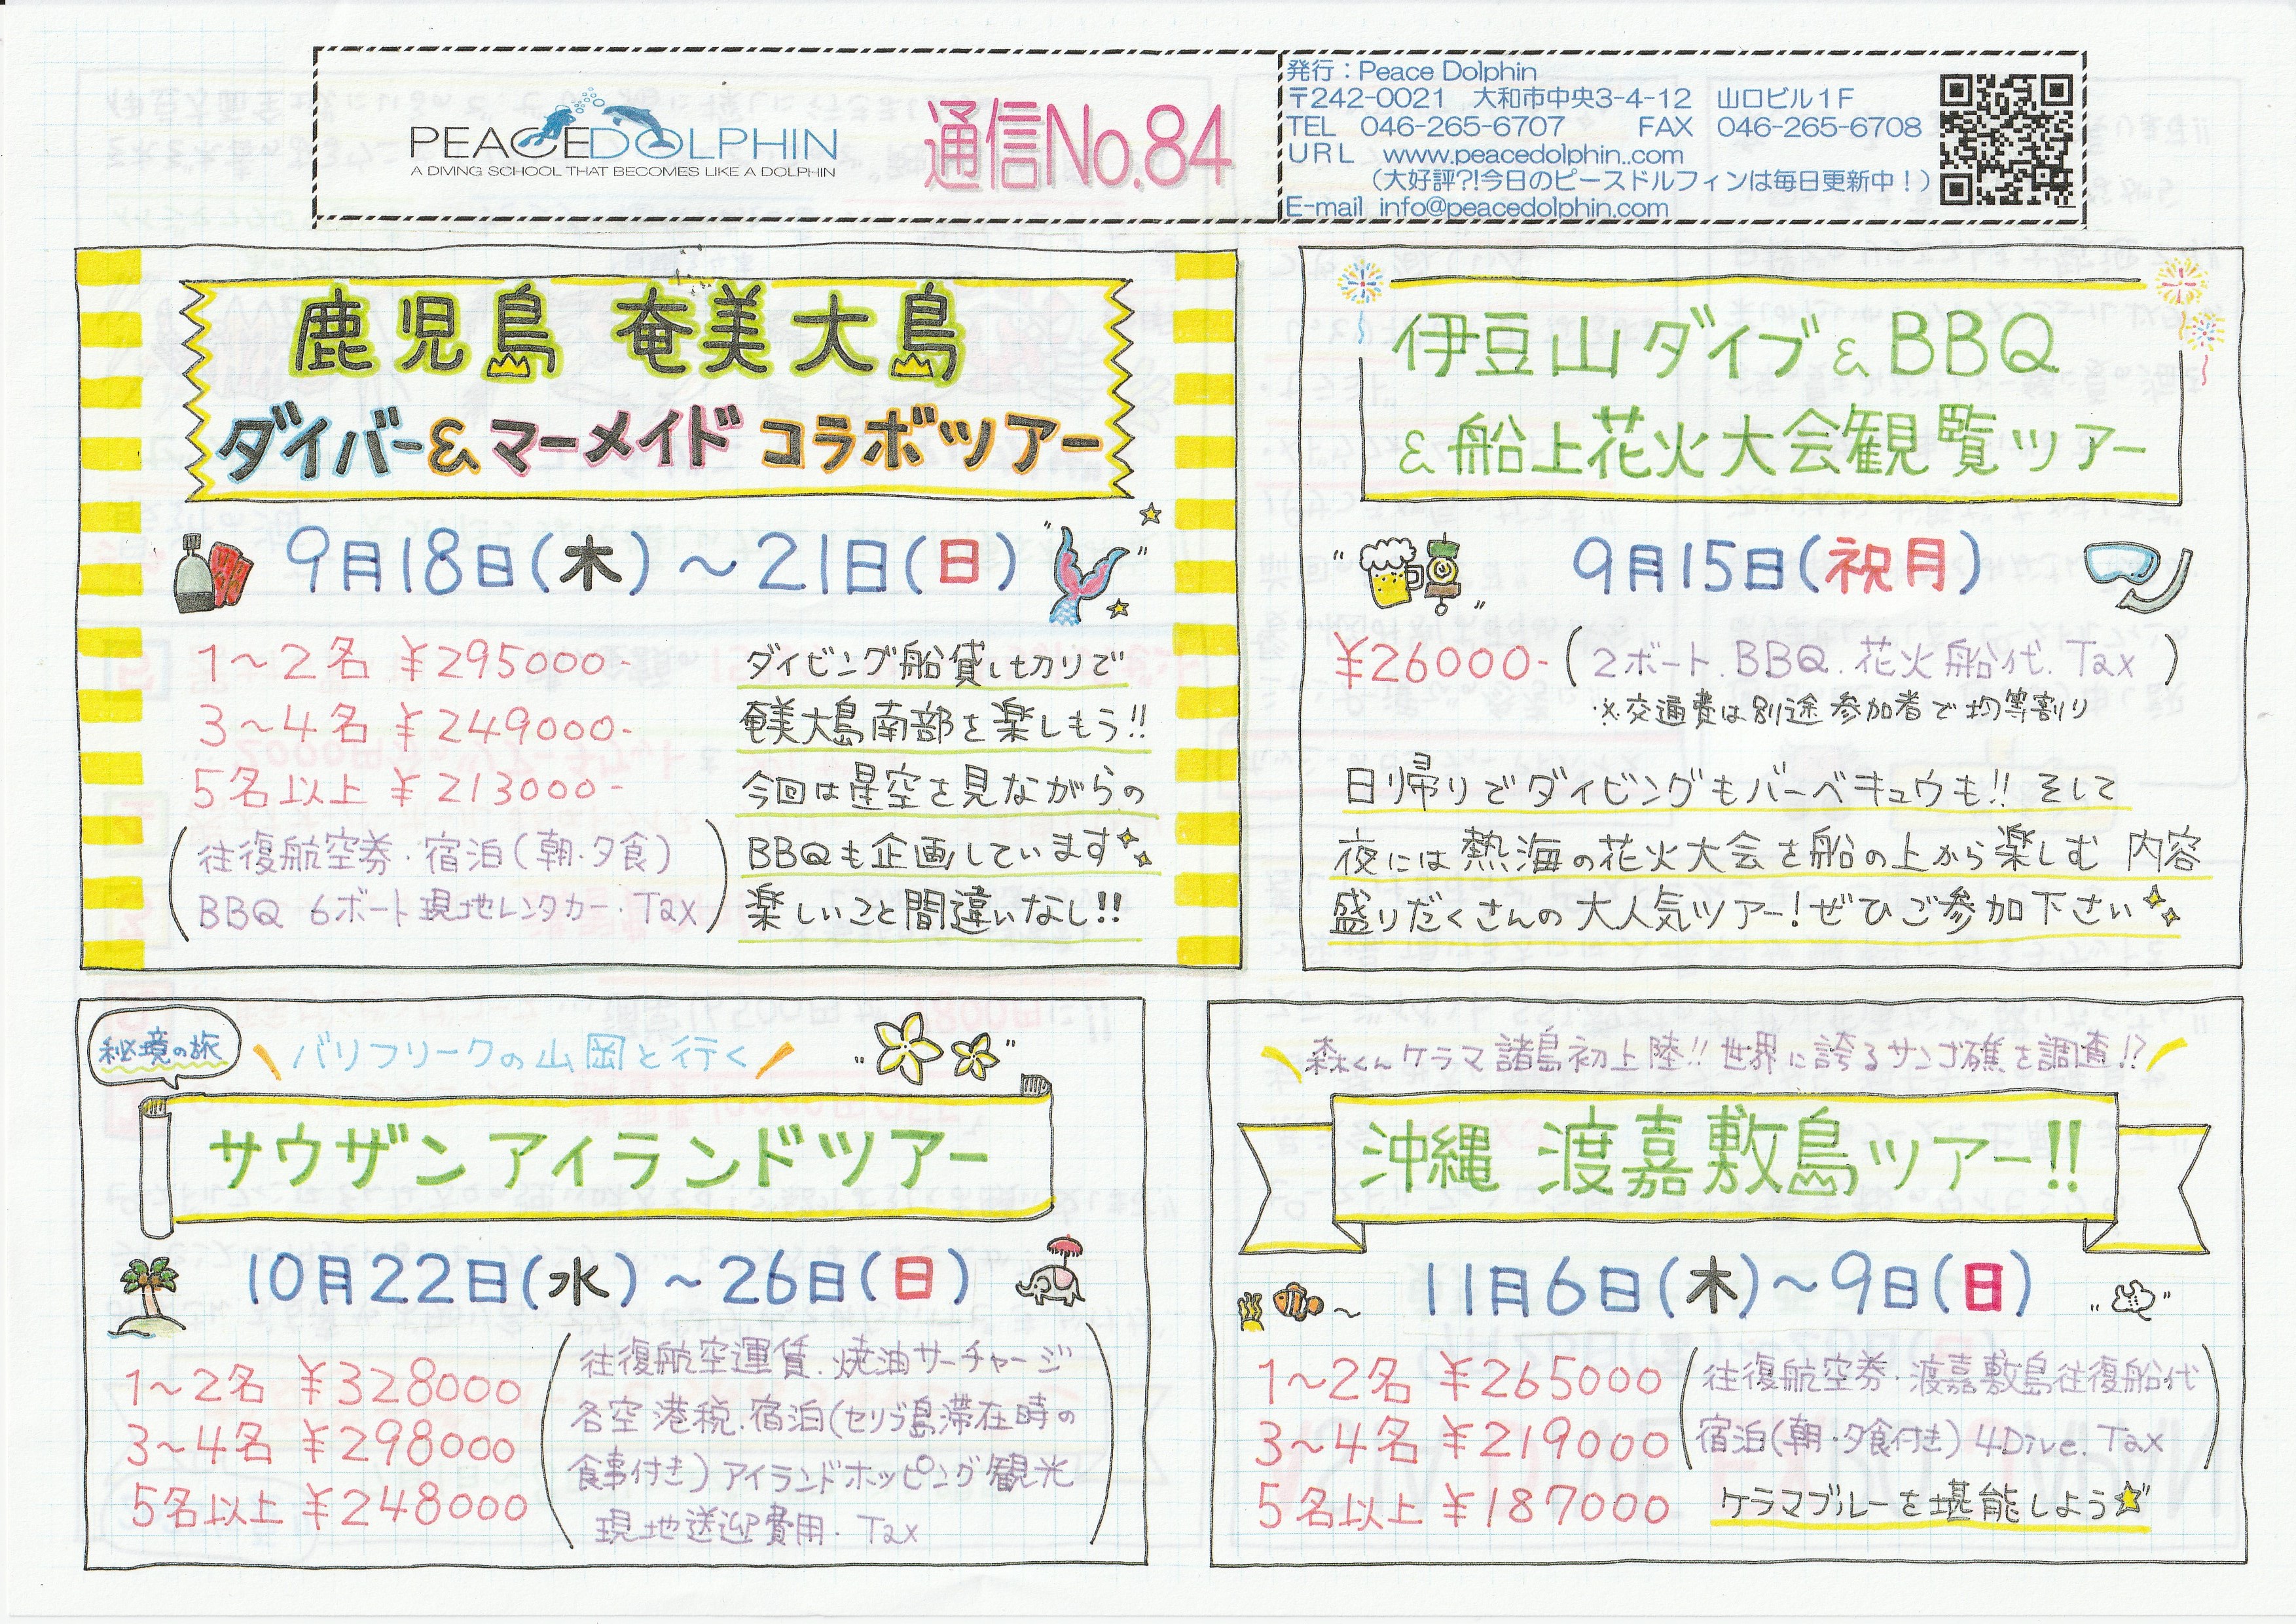 PEACEDOLPHIN
A DIVING SCHOOL THAT BECOMES LIKE A DOLPHIN
通信No.84
発行：Peace Dolphin
〒242-0021 大和市中央3-4-12 山口ビル1F
TEL 046-265-6707 FAX 046-265-6708
URL www.peacedolphin..com
（大好評?!今日のピースドルフィンは毎日更新中！）
E-mail info@peacedolphin.com
鹿児島 奄美大島
ダイバー&マーメイド コラボツアー
9月18日(木)～21日(日)
1～2名 ¥295000-
3～4名 ¥249000-
5名以上 ¥213000-
(往復航空券・宿泊(朝・夕食)
BBQ 6ボート現地レンタカー・Tax)
ダイビング船貸し切りで
奄美大島南部を楽しもう!!
今回は星空を見ながらの
BBQも企画しています
楽しいこと間違いなし!!
伊豆山ダイブ&BBQ
&船上花火大会観覧ツアー
9月15日(祝月)
¥26000-(2ボート.BBQ.花火船代.Tax)
※交通費は別途参加者で均等割り
日帰りでダイビングもバーベキュウも!! そして
夜には熱海の花火大会を船の上から楽しむ 内容
盛りだくさんの大人気ツアー!ぜひご参加下さい
秘境の旅
バリフリークの山岡と行く
サウザンアイランドツアー
10月22日(水)～26日(日)
1～2名 ¥328000
3～4名 ¥298000
5名以上 ¥248000
(往復航空運賃.焼油サーチャージ
各空港税.宿泊(セリブ島滞在時の
食事付き)アイランドホッピング観光
現地送迎費用・Tax)
森くんケラマ諸島初上陸!!世界に誇るサンゴ礁を調査!?
沖縄 渡嘉敷島ツアー!!
11月6日(木)～9日(日)
1～2名 ¥265000
3～4名 ¥219000
5名以上 ¥187000
(往復航空券・渡嘉敷島往復船代
宿泊(朝・夕食付き)4Dive.Tax)
ケラマブルーを堪能しよう